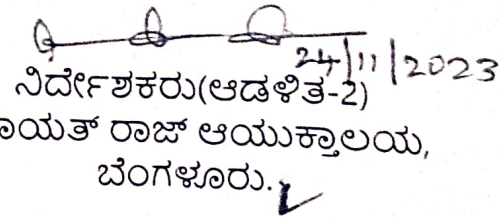 24/11/2023
ನಿರ್ದೇಶಕರು(ಆಡಳಿತ-2)
ಾಯತ್ ರಾಜ್ ಆಯುಕ್ತಾಲಯ,
ಬೆಂಗಳೂರು.